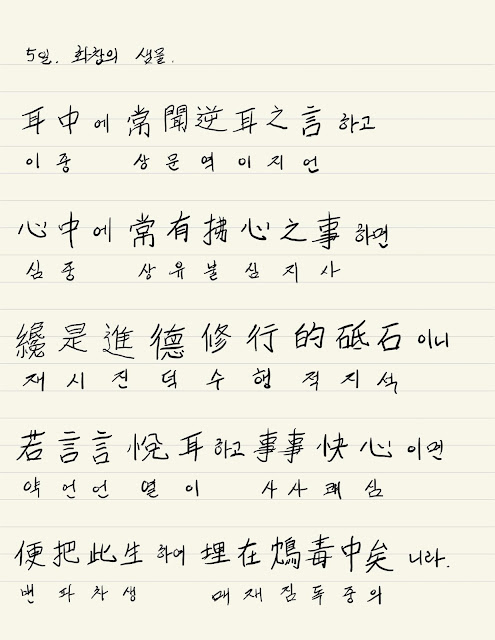 5일. 화창의 샘물.
耳中에 常聞逆耳之言 하고
이중 상문역이지언
心中에 常有拂心之事 하면
심중 상유불심지사
纔是進德修行的砥石 이니
재시진덕수행적지석
若言言悅耳 하고 事事快心 이면
약언언열이 사사쾌심
便把此生 하여 埋在鴆毒中矣 니라.
변파차생 매재짐독중의